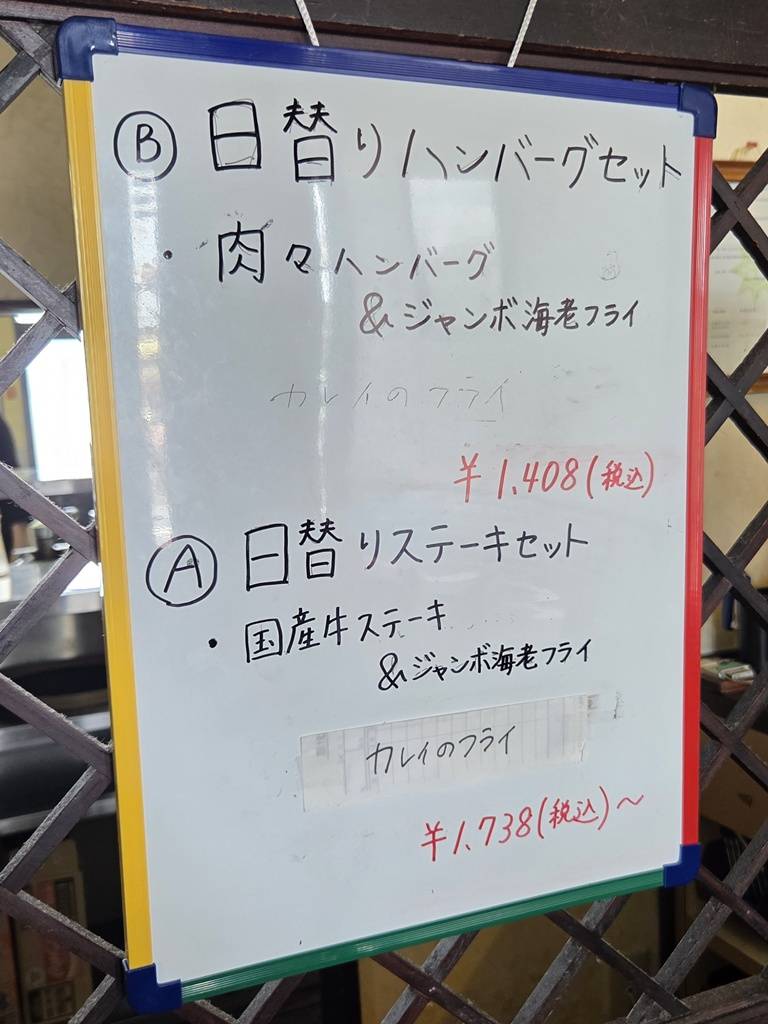 Ⓑ 日替りハンバーグセット
・肉々ハンバーグ
&ジャンボ海老フライ
カレイのフライ
¥1,408(税込)
Ⓐ 日替りステーキセット
・国産牛ステーキ
&ジャンボ海老フライ
カレイのフライ
¥1,738(税込)～